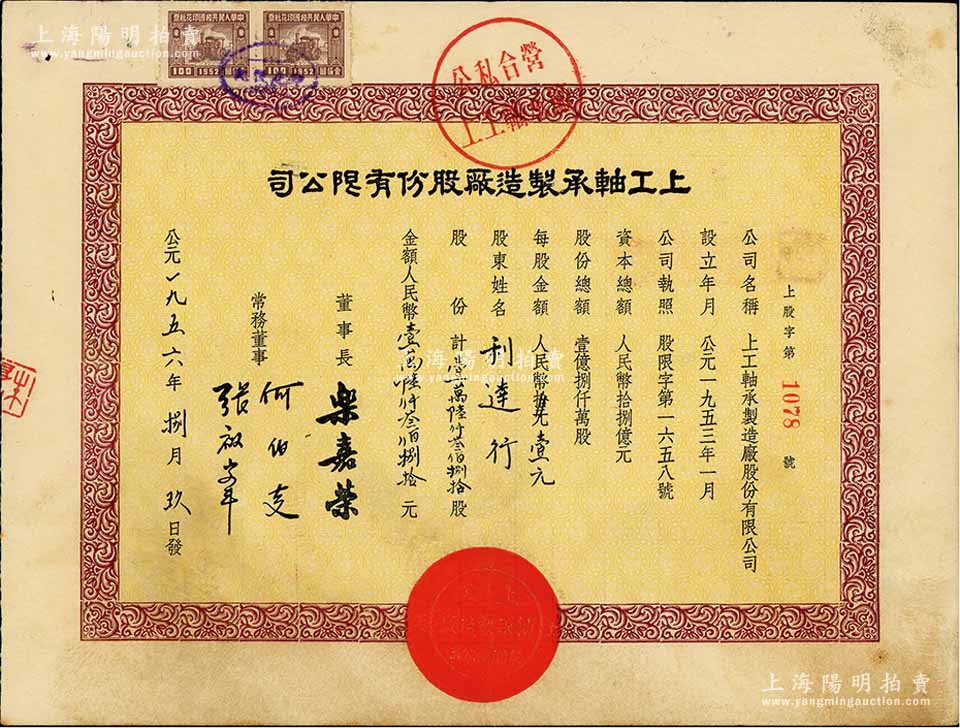 上海陽明拍賣
www.yangmingauction.com
中華人民共和國印花稅票
100 1952
中華人民共和國印花稅票
100 1952
公私合營
上工軸
上工軸承製造廠股份有限公司
上股字第 1078 號
公司名稱 上工軸承製造廠股份有限公司
設立年月 公元一九五三年一月
公司執照 股限字第一六五八號
資本總額 人民幣拾捌億元
股份總額 壹億捌仟萬股
每股金額 人民幣拾元壹元
股東姓名 利達行
股份 計壹萬陸仟叁佰捌拾股
金額人民幣壹萬陸仟叁佰捌拾元
董事長 樂嘉榮
常務董事 何伯
張啟
公元一九五六年捌月玖日發
上海陽明拍賣
www.yangmingauction.com
上海陽明拍賣
www.yangmingauction.com